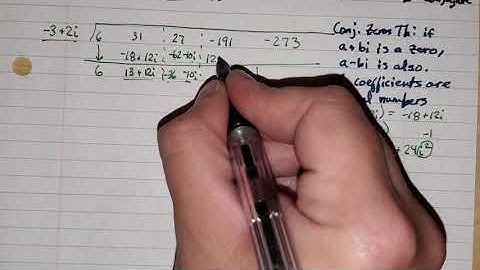 conjugate
-3+2i 6 31 27 -191 -273
-18+12i -62-10i 12
6 13+12i -10i
Conj. Zeros Th: if
a+bi is a zero,
a-bi is also.
coefficients are
numbers
= -18+12i
-1
+ 24i²